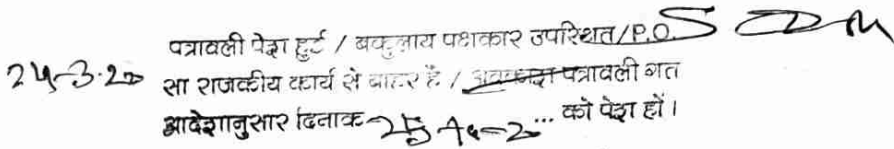 पत्रावली पेश हुई / बकुलाय पक्षकार उपस्थित/P.O. SDM
24-3-20 सा राजकीय कार्य से बाहर है / अवकाश पत्रावली गत
आदेशानुसार दिनाक ... को पेश हों।